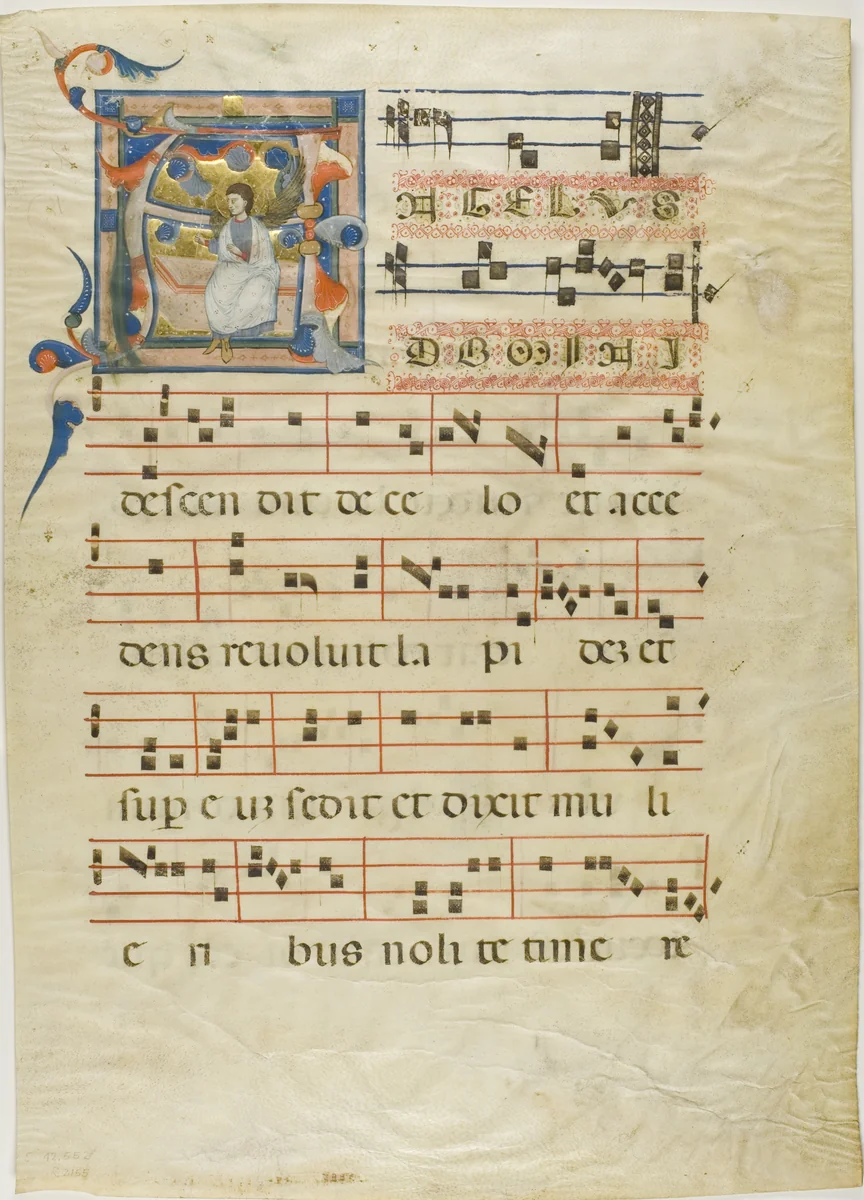 ANGELVS
DOMINI
descen dit de ce lo et acce
dens reuoluit la pi deꝫ et
suꝑ e uꝫ sedit et dixit mu li
e ri bus noli te time re